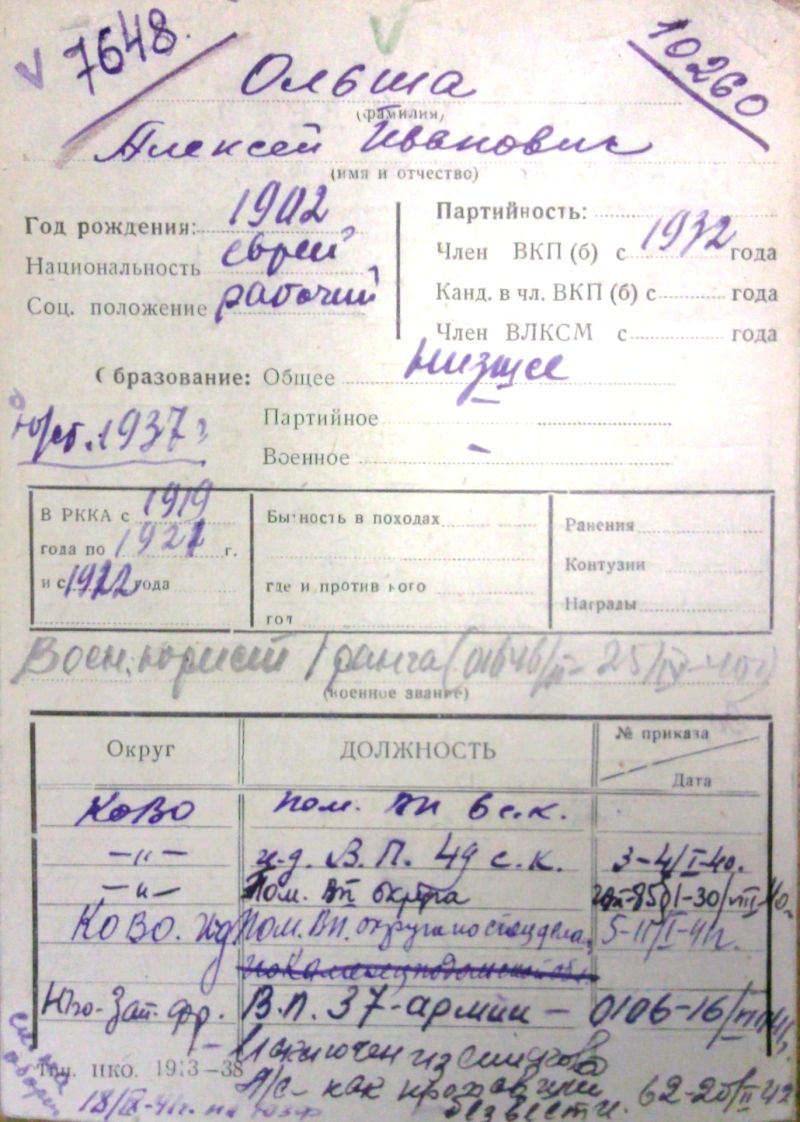 7648.
10260
Ольша
(фамилия)
Алексей Иванович
(имя и отчество)
Год рождения: 1902
Национальность еврей
Соц. положение рабочий
Партийность:
Член ВКП (б) с 1932 года
Канд. в чл. ВКП (б) с года
Член ВЛКСМ с года
Образование: Общее низшее
Партийное
1937 г.
Военное –
В РККА с 1919
года по 1921 г.
и с 1922 года
Бытность в походах
где и против кого
Ранения
Контузии
Награды
Воен. юрист 1 ранга
(военное звание)
Округ ДОЛЖНОСТЬ № приказа
Дата
КОВО пом. ВП 6 с.к.
–"– и.д. В.П. 49 с.к. 3-4/I-40.
–"– Пом. ВП округа
КОВО. Пом. ВП. округа по спецделам 5-11/I-41г.
Юго-Зап. фр. В.П. 37-армии – 0106-16/
Исключен из списков
Тип. НКО. 1913–38
л/с – как пропавший 62-20/II-42
18/IX-41г. на ЮЗФ
без вести.